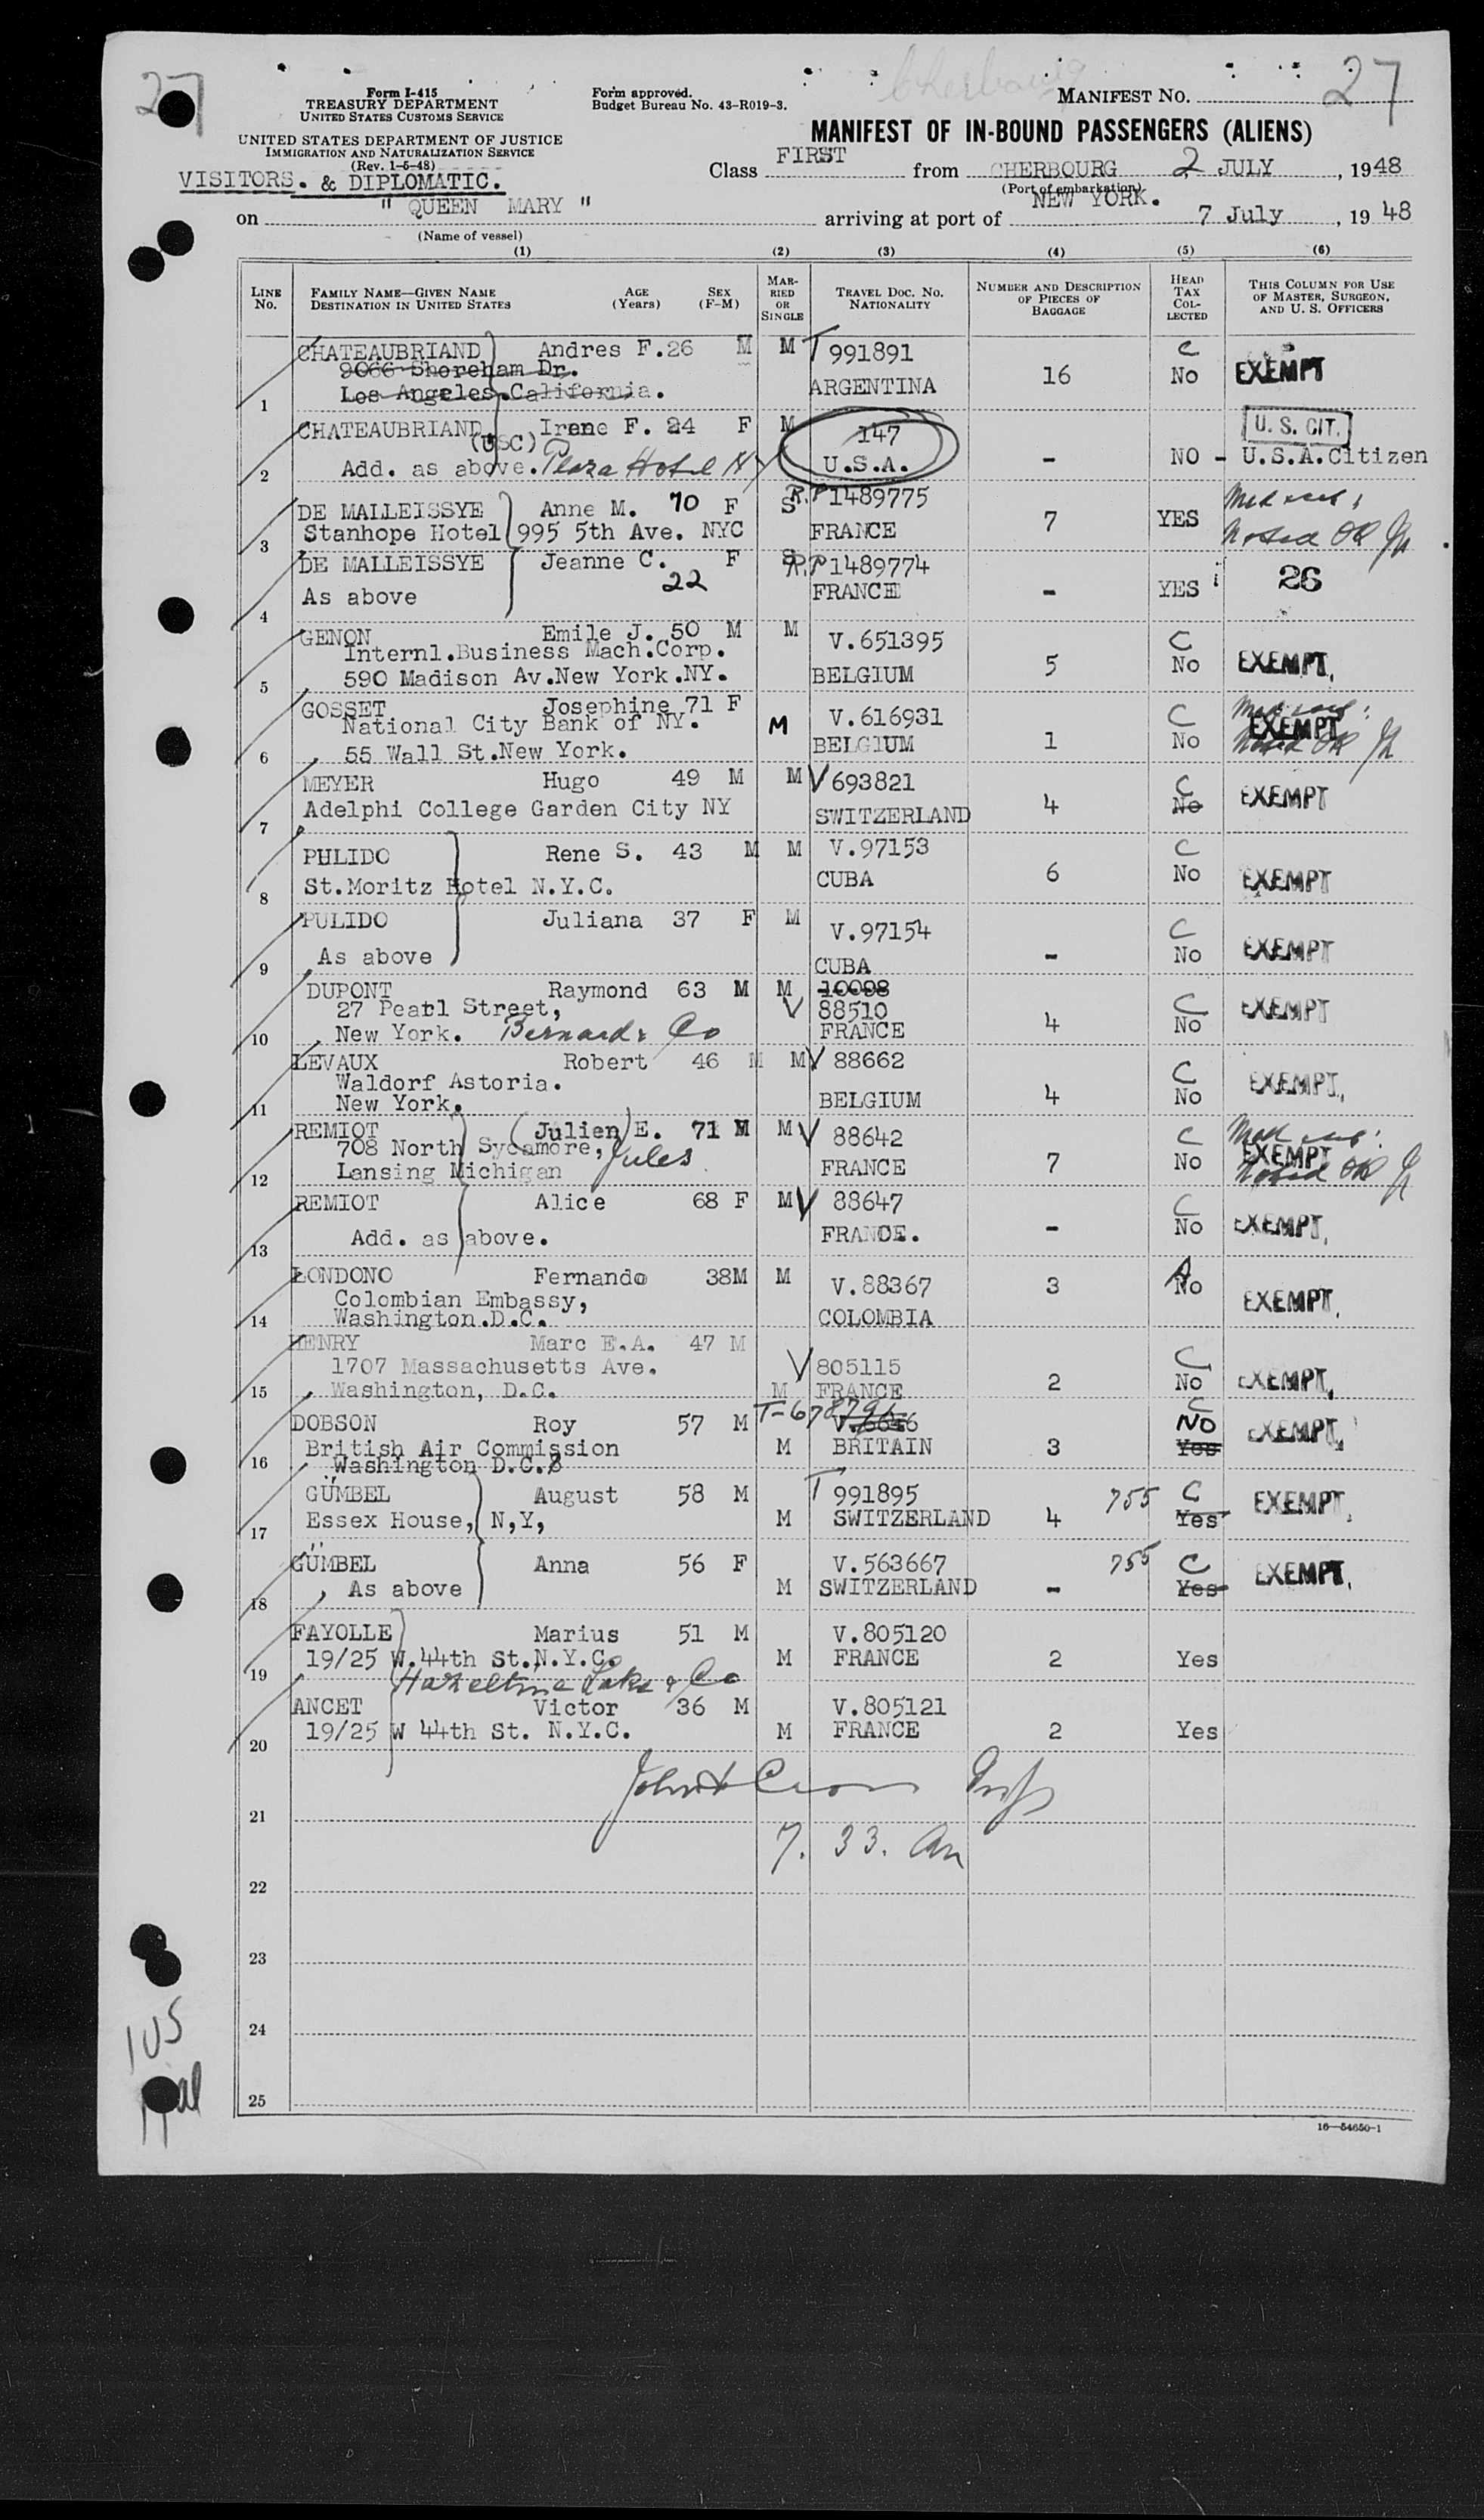 27
Cherbourg
27
Form I-415
TREASURY DEPARTMENT
UNITED STATES CUSTOMS SERVICE
Form approved.
Budget Bureau No. 43-R019-3.
MANIFEST No.
UNITED STATES DEPARTMENT OF JUSTICE
IMMIGRATION AND NATURALIZATION SERVICE
(Rev. 1-5-48)
MANIFEST OF IN-BOUND PASSENGERS (ALIENS)
VISITORS. & DIPLOMATIC.
Class FIRST from CHERBOURG 2 JULY, 1948
(Port of embarkation)
on " QUEEN MARY " arriving at port of NEW YORK. 7 July, 19 48
(Name of vessel)
(1) (2) (3) (4) (5) (6)
LINE No. FAMILY NAME—GIVEN NAME DESTINATION IN UNITED STATES AGE (Years) SEX (F-M) MARRIED OR SINGLE TRAVEL DOC. NO. NATIONALITY NUMBER AND DESCRIPTION OF PIECES OF BAGGAGE HEAD TAX COLLECTED THIS COLUMN FOR USE OF MASTER, SURGEON, AND U. S. OFFICERS
CHATEAUBRIAND Andres F. 26 M M T 991891 C
9066 Shoreham Dr. 16 No EXEMPT
1 Los Angeles.California. ARGENTINA
CHATEAUBRIAND Irene F. 24 F M 147 U. S. CIT.
(USC)
2 Add. as above. Plaza Hotel NY U.S.A. - NO - U.S.A.Citizen
DE MALLEISSYE Anne M. 70 F S R.P 1489775
3 Stanhope Hotel 995 5th Ave. NYC FRANCE 7 YES Noted OK
DE MALLEISSYE Jeanne C. 22 F S R.P 1489774 26
4 As above FRANCE - YES
GENON Emile J. 50 M M V.651395 C
Internl.Business Mach.Corp.
5 590 Madison Av.New York.NY. BELGIUM 5 No EXEMPT.
GOSSET Josephine 71 F M V.616931 C
National City Bank of NY. EXEMPT
6 55 Wall St.New York. BELGIUM 1 No Noted OK
MEYER Hugo 49 M M V 693821 C
7 Adelphi College Garden City NY SWITZERLAND 4 No EXEMPT
PHLIDO Rene S. 43 M M V.97153 C
8 St.Moritz Hotel N.Y.C. CUBA 6 No EXEMPT
PULIDO Juliana 37 F M V.97154 C
9 As above CUBA - No EXEMPT
DUPONT Raymond 63 M M 10098
27 Pearl Street, V 88510 C EXEMPT
10 New York. Bernard & Co FRANCE 4 No
LEVAUX Robert 46 M M V 88662
Waldorf Astoria. C EXEMPT.
11 New York. BELGIUM 4 No
REMIOT (Julien) E. 71 M M V 88642 C
708 North Sycamore, Jules EXEMPT
12 Lansing Michigan FRANCE 7 No Noted OK
REMIOT Alice 68 F M V 88647 C
13 Add. as above. FRANCE. - No EXEMPT.
LONDONO Fernando 38M M V.88367 3 A No
Colombian Embassy, EXEMPT.
14 Washington.D.C. COLOMBIA
HENRY Marc E.A. 47 M
1707 Massachusetts Ave. V 805115 C
15 Washington, D.C. M FRANCE 2 No EXEMPT.
DOBSON Roy 57 M T-678796 V.6646 C NO
British Air Commission M BRITAIN 3 Yes EXEMPT.
16 Washington D.C.
GÜMBEL August 58 M T 991895 755 C
17 Essex House, N,Y, M SWITZERLAND 4 Yes EXEMPT.
GÜMBEL Anna 56 F V.563667 755 C
18 As above M SWITZERLAND - Yes EXEMPT.
FAYOLLE Marius 51 M V.805120
19 19/25 W.44th St.N.Y.C. M FRANCE 2 Yes
Hazeltine Lake & Co
ANCET Victor 36 M V.805121
20 19/25 W 44th St. N.Y.C. M FRANCE 2 Yes
21
7. 33. am
22
23
24
25
105
16—54650-1